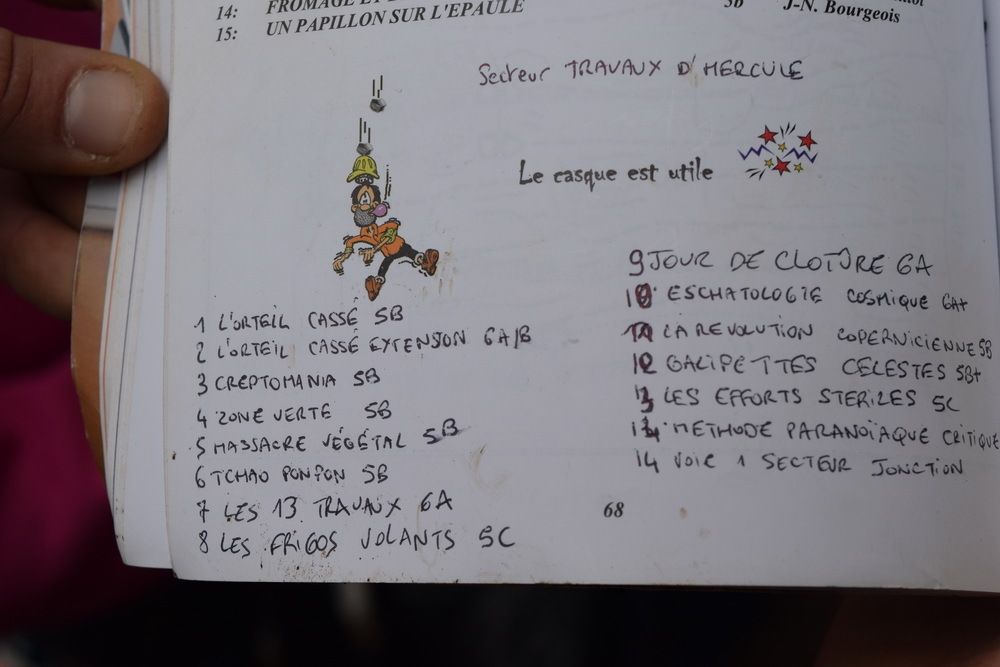 14: FROMAGE ET
15: UN PAPILLON SUR L'EPAULE 5b J-N. Bourgeois
Secteur TRAVAUX D'HERCULE
Le casque est utile
1 L'ORTEIL CASSÉ 5B
2 L'ORTEIL CASSÉ EXTENSION 6A/B
3 CREPTOMANIA 5B
4 ZONE VERTE 5B
5 MASSACRE VÉGÉTAL 5B
6 TCHAO PONPON 5B
7 LES 13 TRAVAUX 6A
8 LES FRIGOS VOLANTS 5C
9 JOUR DE CLOTÛRE 6A
10 ESCHATOLOGIE COSMIQUE 6A+
11 LA REVOLUTION COPERNICIENNE 5B
12 GALIPETTES CELESTES 5B+
13 LES EFFORTS STERILES 5C
14 METHODE PARANOÏAQUE CRITIQUE
14 VOIE 1 SECTEUR JONCTION
68